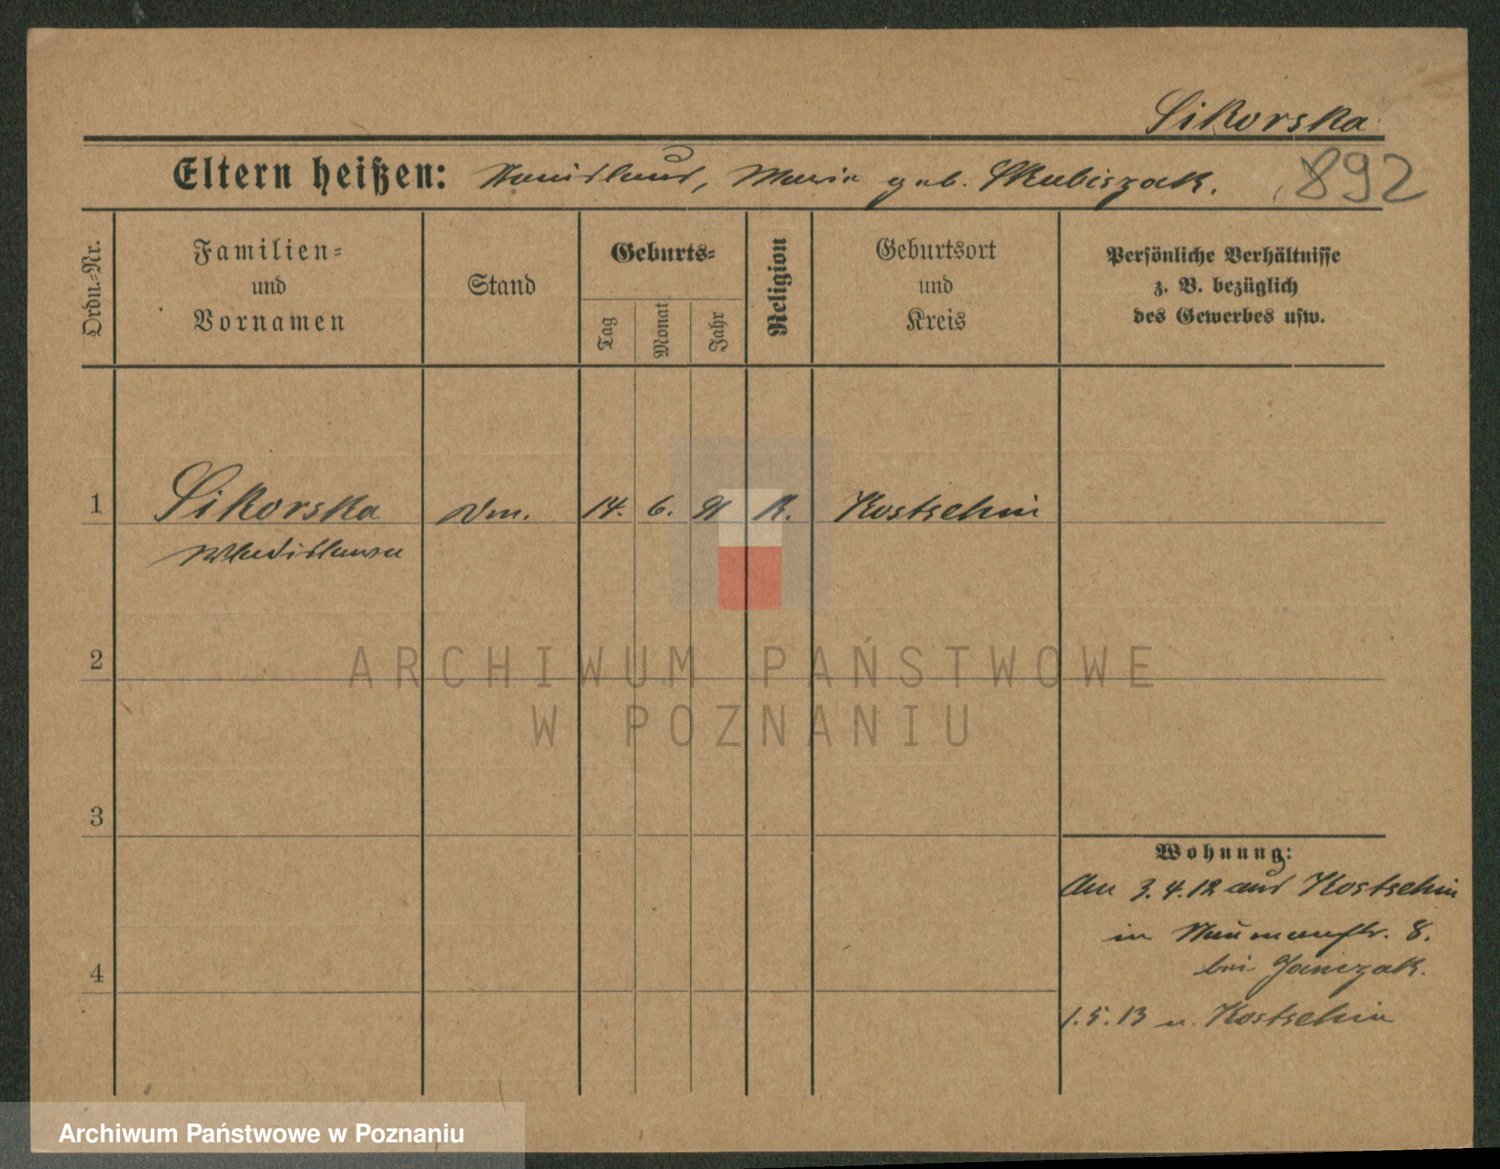 Sikorska
Eltern heißen: Stanislaus, Maria geb. Skubiszak.
892
Ordn.=Nr.
Familien=
und
Vornamen
Stand
Geburts=
Tag
Monat
Jahr
Religion
Geburtsort
und
Kreis
Persönliche Verhältnisse
z. B. bezüglich
des Gewerbes usw.
1 Sikorska 14. 6. 91 K. Kostschin
Wladislawa
2
ARCHIWUM PAŃSTWOWE
W POZNANIU
3
Wohnung:
Am 3.4.12 aus Kostschin
in Naumannstr. 8.
bei Janczak.
4
1.5.13 n. Kostschin
Archiwum Państwowe w Poznaniu